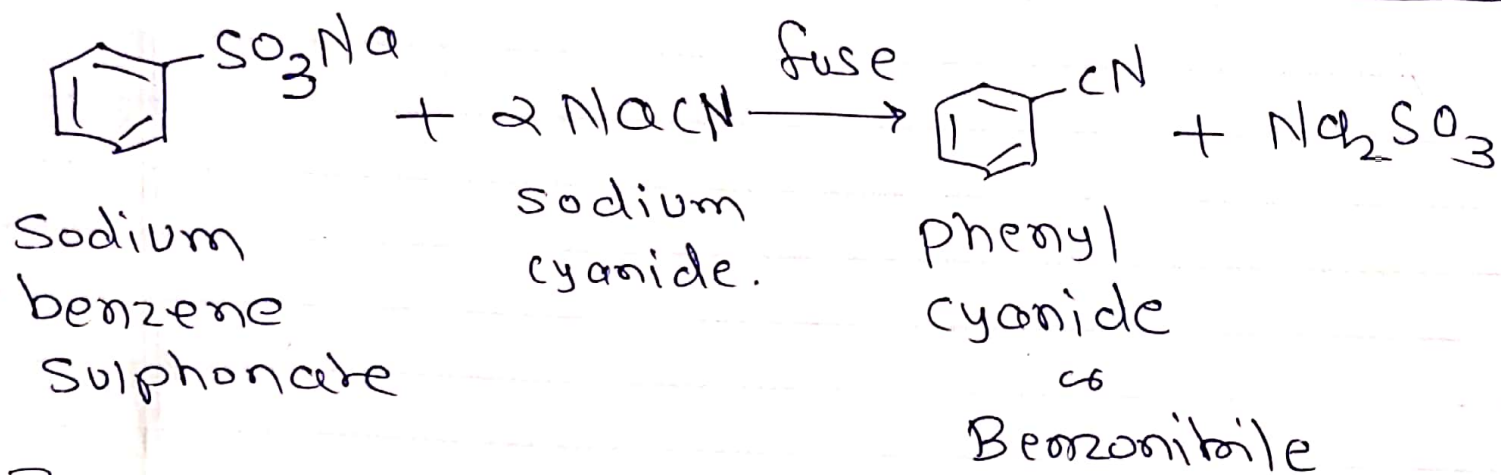 SO3Na + 2 NaCN fuse → CN + Na2SO3
Sodium benzene Sulphonate
sodium cyanide.
phenyl cyanide
or
Benzonitrile